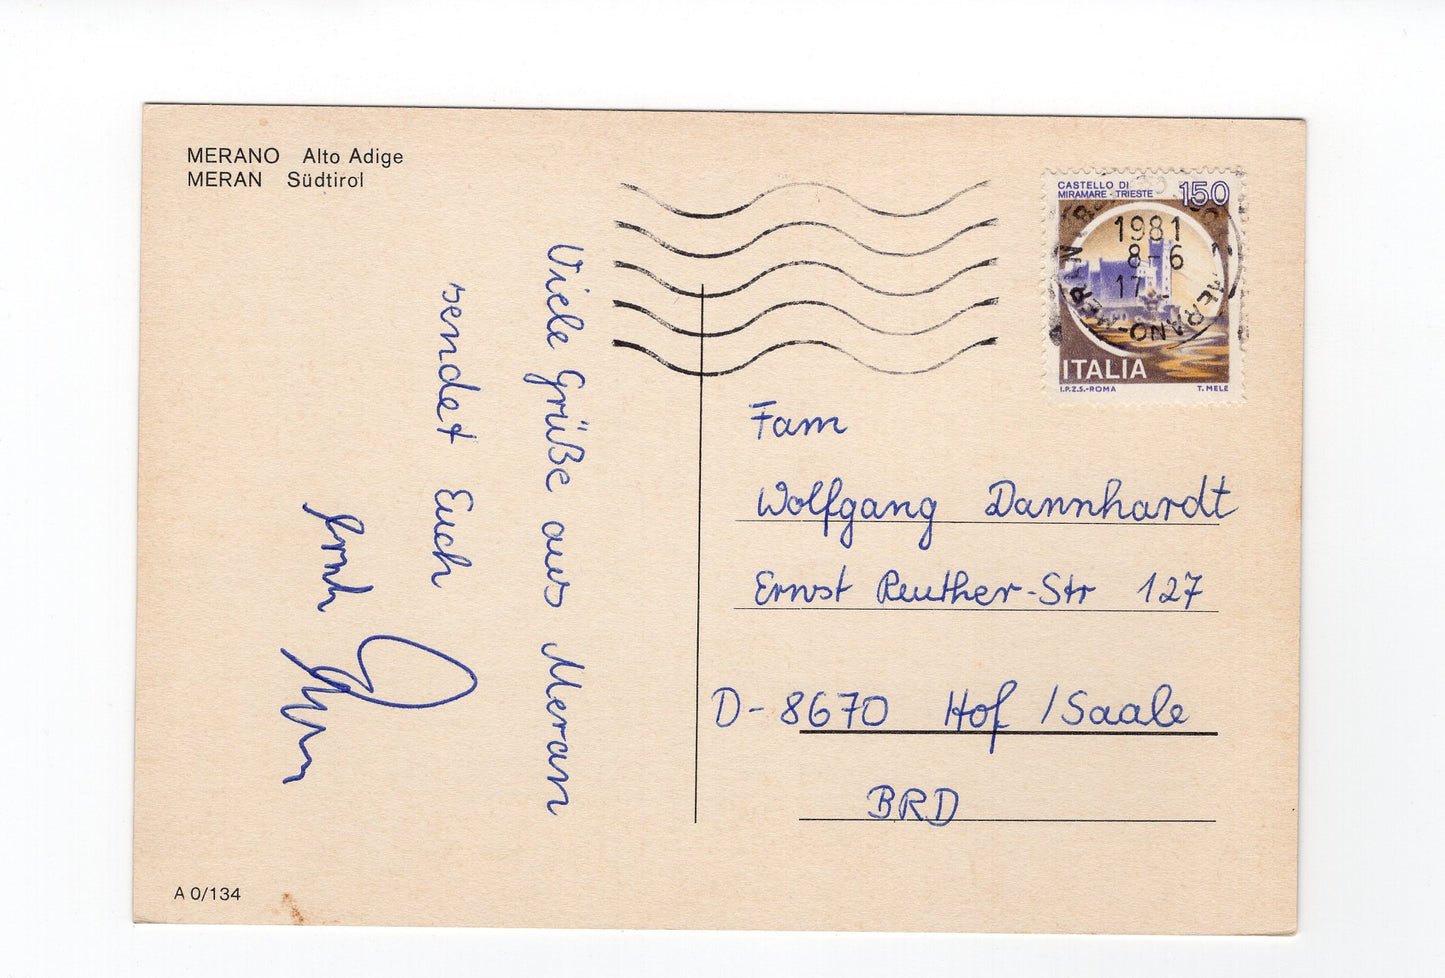 MERANO Alto Adige
MERAN Südtirol
Viele Grüße aus Meran
sendet Euch
CASTELLO DI
MIRAMARE - TRIESTE
150
1981
8-6
17
MERANO-MERAN
ITALIA
I.P.Z.S.-ROMA T. MELE
Fam
Wolfgang Dannhardt
Ernst Reuther-Str 127
D-8670 Hof /Saale
BRD
A 0/134